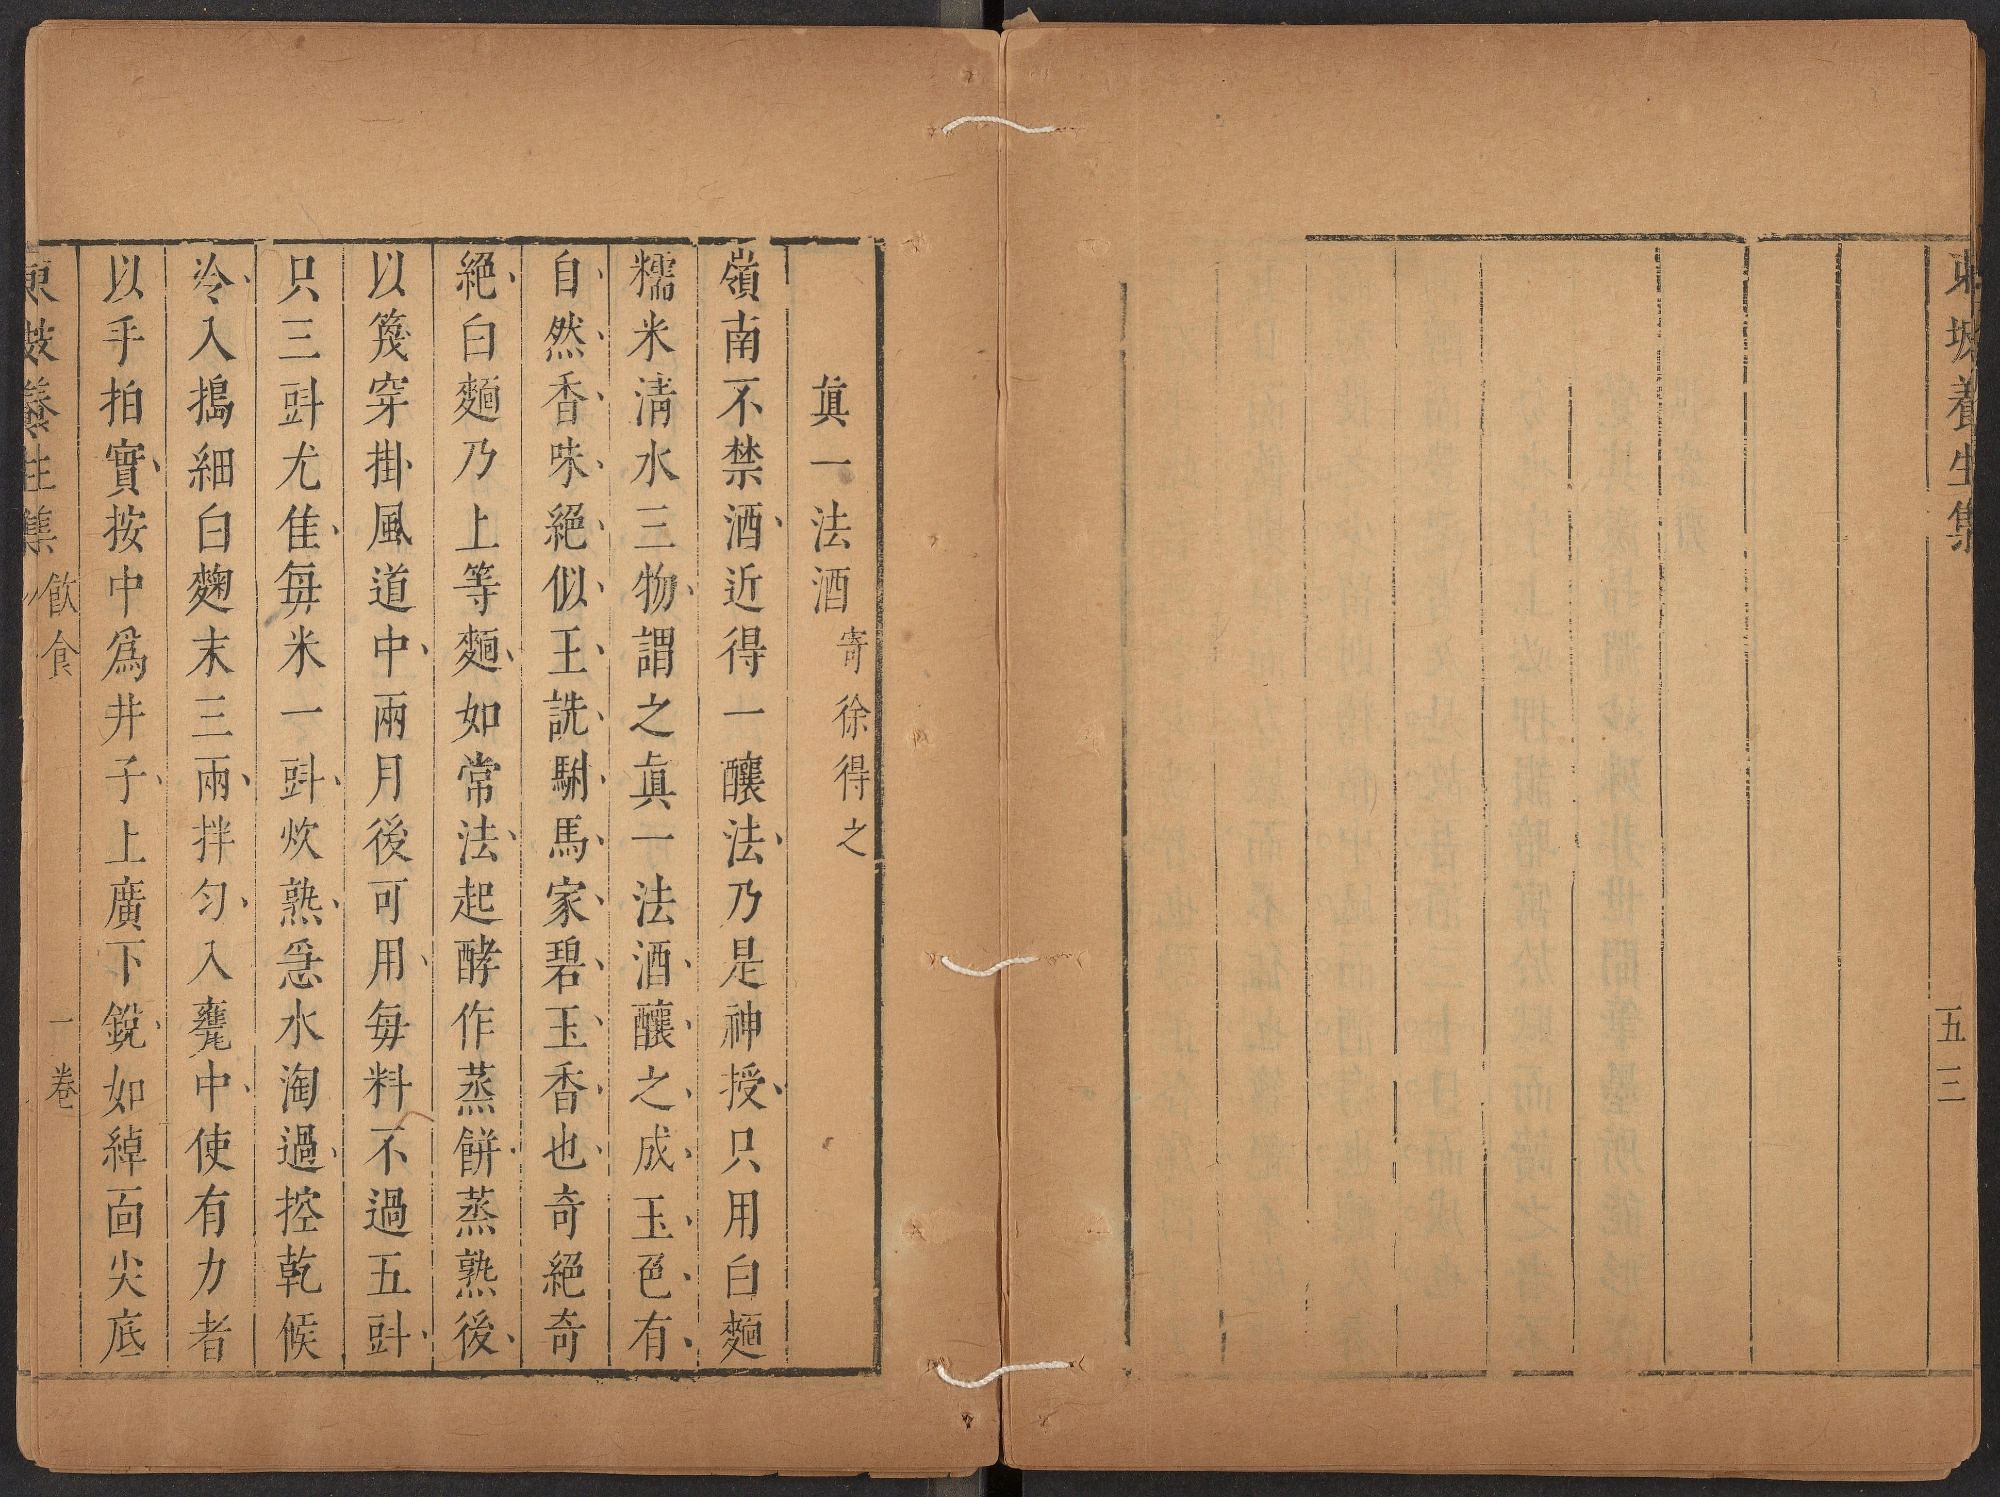 東坡養生集
五三
眞一法酒寄徐得之
嶺南不禁酒近得一釀法乃是神授只用白麵
糯米清水三物謂之眞一法酒釀之成玉色有
自然香味絕似王詵駙馬家碧玉香也奇絕奇
絕白麵乃上等麵如常法起酵作蒸餅蒸熟後
以篾穿掛風道中兩月後可用每料不過五㪷
只三㪷尤佳每米一㪷炊熟急水淘過控乾候
冷入搗細白麴末三兩拌勻入甕中使有力者
以手拍實按中爲井子上廣下銳如綽面尖底
東坡養生集
飲食
一卷